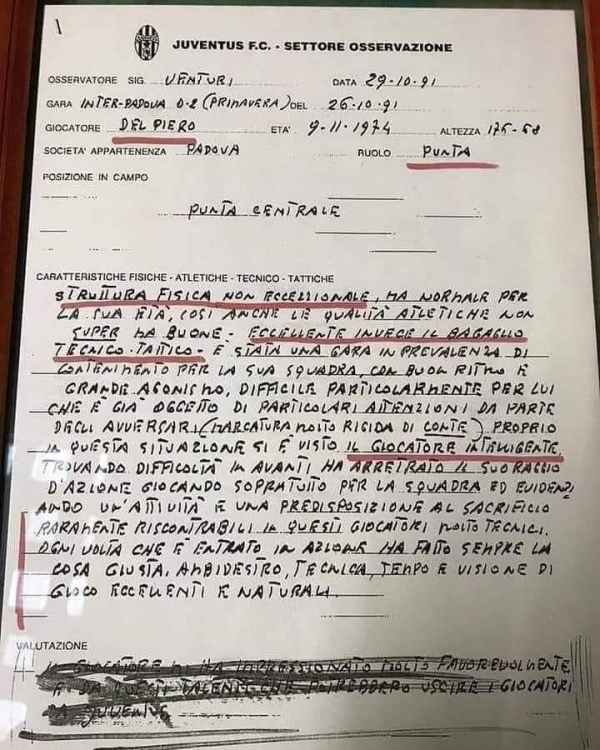 JUVENTUS F.C. - SETTORE OSSERVAZIONE
OSSERVATORE SIG. VENTURI DATA 29-10-91
GARA INTER-PADOVA 0-2 (PRIMAVERA) DEL 26-10-91
GIOCATORE DEL PIERO ETA' 9-11-1974 ALTEZZA 175-68
SOCIETA' APPARTENENZA PADOVA RUOLO PUNTA
POSIZIONE IN CAMPO
PUNTA CENTRALE
CARATTERISTICHE FISICHE - ATLETICHE - TECNICO - TATTICHE
STRUTTURA FISICA NON ECCEZIONALE, MA NORMALE PER
LA SUA ETÀ, COSI ANCHE LE QUALITÀ ATLETICHE NON
SUPER MA BUONE - ECCELLENTE INVECE IL BAGAGLIO
TECNICO-TATTICO - È STATA UNA GARA IN PREVALENZA DI
CONTENIMENTO PER LA SUA SQUADRA, CON BUON RITMO E
GRANDE AGONISMO, DIFFICILE PARTICOLARMENTE PER LUI
CHE È GIÀ OGGETTO DI PARTICOLARI ATTENZIONI DA PARTE
DEGLI AVVERSARI (MARCATURA MOLTO RIGIDA DI CONTE) PROPRIO
IN QUESTA SITUAZIONE SI È VISTO IL GIOCATORE INTELLIGENTE,
TROVANDO DIFFICOLTÀ IN AVANTI HA ARRETRATO IL SUO RAGGIO
D'AZIONE GIOCANDO SOPRATUTTO PER LA SQUADRA ED EVIDENZI
ANDO UN'ATTIVITÀ E UNA PREDISPOSIZIONE AL SACRIFICIO
RARAMENTE RISCONTRABILI IN QUESTI GIOCATORI MOLTO TECNICI.
OGNI VOLTA CHE È ENTRATO IN AZIONE HA FATTO SEMPRE LA
COSA GIUSTA, AMBIDESTRO, TECNICA, TEMPO E VISIONE DI
GIOCO ECCELLENTI E NATURALI.
VALUTAZIONE
IL GIOCATORE MI HA IMPRESSIONATO MOLTO FAVOREVOLMENTE
È DA QUESTI TALENTI CHE POTREBBERO USCIRE I GIOCATORI
DA JUVENTUS